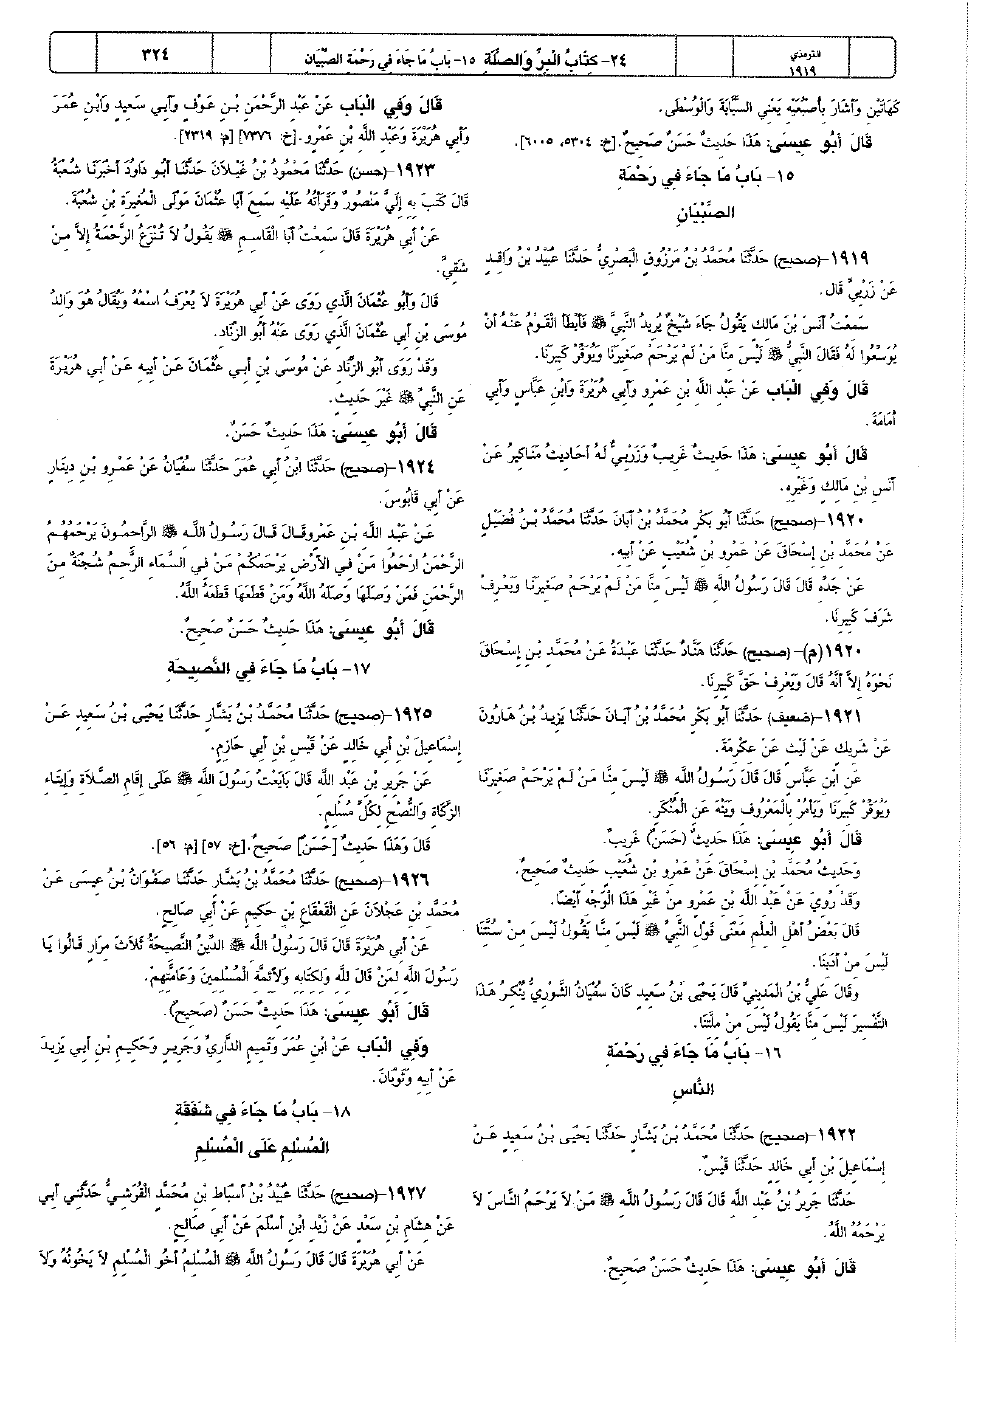 الترمذي
١٩١٩
٢٤- كِتَابُ الْبِرِّ وَالصِّلَةِ ١٥- بَابُ مَا جَاءَ فِي رَحْمَةِ الصِّبْيَانِ
٣٢٤
كَهَاتَيْنِ وَأَشَارَ بِأُصْبُعَيْهِ يَعْنِي السَّبَّابَةَ وَالْوُسْطَى.
قَالَ أَبُو عِيسَى: هَذَا حَدِيثٌ حَسَنٌ صَحِيحٌ. [خ: ٥٣٠٤، ٦٠٠٥].
١٥- بَابُ مَا جَاءَ فِي رَحْمَةِ
الصِّبْيَانِ
١٩١٩-(صحيح) حَدَّثَنَا مُحَمَّدُ بْنُ مَرْزُوقٍ الْبَصْرِيُّ حَدَّثَنَا عُبَيْدُ بْنُ وَاقِدٍ
عَنْ زَرْبِيٍّ قَالَ.
سَمِعْتُ أَنَسَ بْنَ مَالِكٍ يَقُولُ جَاءَ شَيْخٌ يُرِيدُ النَّبِيَّ ﷺ فَأَبْطَأَ الْقَوْمُ عَنْهُ أَنْ
يُوَسِّعُوا لَهُ فَقَالَ النَّبِيُّ ﷺ لَيْسَ مِنَّا مَنْ لَمْ يَرْحَمْ صَغِيرَنَا وَيُوَقِّرْ كَبِيرَنَا.
قَالَ وَفِي الْبَاب عَنْ عَبْدِ اللَّهِ بْنِ عَمْرٍو وَأَبِي هُرَيْرَةَ وَابْنِ عَبَّاسٍ وَأَبِي
أُمَامَةَ.
قَالَ أَبُو عِيسَى: هَذَا حَدِيثٌ غَرِيبٌ وَزَرْبِيٌّ لَهُ أَحَادِيثُ مَنَاكِيرُ عَنْ
أَنَسِ بْنِ مَالِكٍ وَغَيْرِهِ.
١٩٢٠-(صحيح) حَدَّثَنَا أَبُو بَكْرٍ مُحَمَّدُ بْنُ أَبَانَ حَدَّثَنَا مُحَمَّدُ بْنُ فُضَيْلٍ
عَنْ مُحَمَّدِ بْنِ إِسْحَاقَ عَنْ عَمْرِو بْنِ شُعَيْبٍ عَنْ أَبِيهِ.
عَنْ جَدِّهِ قَالَ قَالَ رَسُولُ اللَّهِ ﷺ لَيْسَ مِنَّا مَنْ لَمْ يَرْحَمْ صَغِيرَنَا وَيَعْرِفْ
شَرَفَ كَبِيرِنَا.
١٩٢٠(م)-(صحيح) حَدَّثَنَا هَنَّادٌ حَدَّثَنَا عَبْدَةُ عَنْ مُحَمَّدِ بْنِ إِسْحَاقَ
نَحْوَهُ إِلاَّ أَنَّهُ قَالَ وَيَعْرِفْ حَقَّ كَبِيرِنَا.
١٩٢١-(ضعيف) حَدَّثَنَا أَبُو بَكْرٍ مُحَمَّدُ بْنُ أَبَانَ حَدَّثَنَا يَزِيدُ بْنُ هَارُونَ
عَنْ شَرِيكٍ عَنْ لَيْثٍ عَنْ عِكْرِمَةَ.
عَنِ ابْنِ عَبَّاسٍ قَالَ قَالَ رَسُولُ اللَّهِ ﷺ لَيْسَ مِنَّا مَنْ لَمْ يَرْحَمْ صَغِيرَنَا
وَيُوَقِّرْ كَبِيرَنَا وَيَأْمُرْ بِالْمَعْرُوفِ وَيَنْهَ عَنِ الْمُنْكَرِ.
قَالَ أَبُو عِيسَى: هَذَا حَدِيثٌ (حَسَنٌ) غَرِيبٌ.
وَحَدِيثُ مُحَمَّدِ بْنِ إِسْحَاقَ عَنْ عَمْرِو بْنِ شُعَيْبٍ حَدِيثٌ صَحِيحٌ.
وَقَدْ رُوِيَ عَنْ عَبْدِ اللَّهِ بْنِ عَمْرٍو مِنْ غَيْرِ هَذَا الْوَجْهِ أَيْضًا.
قَالَ بَعْضُ أَهْلِ الْعِلْمِ مَعْنَى قَوْلِ النَّبِيِّ ﷺ لَيْسَ مِنَّا يَقُولُ لَيْسَ مِنْ سُنَّتِنَا
لَيْسَ مِنْ أَدَبِنَا.
وَقَالَ عَلِيُّ بْنُ الْمَدِينِيِّ قَالَ يَحْيَى بْنُ سَعِيدٍ كَانَ سُفْيَانُ الثَّوْرِيُّ يُنْكِرُ هَذَا
التَّفْسِيرَ لَيْسَ مِنَّا يَقُولُ لَيْسَ مِنْ مِلَّتِنَا.
١٦- بَابُ مَا جَاءَ فِي رَحْمَةِ
النَّاسِ
١٩٢٢-(صحيح) حَدَّثَنَا مُحَمَّدُ بْنُ بَشَّارٍ حَدَّثَنَا يَحْيَى بْنُ سَعِيدٍ عَنْ
إِسْمَاعِيلَ بْنِ أَبِي خَالِدٍ حَدَّثَنَا قَيْسٌ.
حَدَّثَنَا جَرِيرُ بْنُ عَبْدِ اللَّهِ قَالَ قَالَ رَسُولُ اللَّهِ ﷺ مَنْ لاَ يَرْحَمُ النَّاسَ لاَ
يَرْحَمُهُ اللَّهُ.
قَالَ أَبُو عِيسَى: هَذَا حَدِيثٌ حَسَنٌ صَحِيحٌ.
قَالَ وَفِي الْبَاب عَنْ عَبْدِ الرَّحْمَنِ بْنِ عَوْفٍ وَأَبِي سَعِيدٍ وَابْنِ عُمَرَ
وَأَبِي هُرَيْرَةَ وَعَبْدِ اللَّهِ بْنِ عَمْرٍو. [خ: ٧٣٧٦] [م: ٢٣١٩].
١٩٢٣-(حسن) حَدَّثَنَا مَحْمُودُ بْنُ غَيْلاَنَ حَدَّثَنَا أَبُو دَاوُدَ أَخْبَرَنَا شُعْبَةُ
قَالَ كَتَبَ بِهِ إِلَيَّ مَنْصُورٌ وَقَرَأْتُهُ عَلَيْهِ سَمِعَ أَبَا عُثْمَانَ مَوْلَى الْمُغِيرَةِ بْنِ شُعْبَةَ.
عَنْ أَبِي هُرَيْرَةَ قَالَ سَمِعْتُ أَبَا الْقَاسِمِ ﷺ يَقُولُ لاَ تُنْزَعُ الرَّحْمَةُ إِلاَّ مِنْ
شَقِيٍّ.
قَالَ وَأَبُو عُثْمَانَ الَّذِي رَوَى عَنْ أَبِي هُرَيْرَةَ لاَ يُعْرَفُ اسْمُهُ وَيُقَالُ هُوَ وَالِدُ
مُوسَى بْنِ أَبِي عُثْمَانَ الَّذِي رَوَى عَنْهُ أَبُو الزِّنَادِ.
وَقَدْ رَوَى أَبُو الزِّنَادِ عَنْ مُوسَى بْنِ أَبِي عُثْمَانَ عَنْ أَبِيهِ عَنْ أَبِي هُرَيْرَةَ
عَنِ النَّبِيِّ ﷺ غَيْرَ حَدِيثٍ.
قَالَ أَبُو عِيسَى: هَذَا حَدِيثٌ حَسَنٌ.
١٩٢٤-(صحيح) حَدَّثَنَا ابْنُ أَبِي عُمَرَ حَدَّثَنَا سُفْيَانُ عَنْ عَمْرِو بْنِ دِينَارٍ
عَنْ أَبِي قَابُوسَ.
عَنْ عَبْدِ اللَّهِ بْنِ عَمْرٍو قَالَ قَالَ رَسُولُ اللَّهِ ﷺ الرَّاحِمُونَ يَرْحَمُهُمُ
الرَّحْمَنُ ارْحَمُوا مَنْ فِي الأَرْضِ يَرْحَمْكُمْ مَنْ فِي السَّمَاءِ الرَّحِمُ شُجْنَةٌ مِنَ
الرَّحْمَنِ فَمَنْ وَصَلَهَا وَصَلَهُ اللَّهُ وَمَنْ قَطَعَهَا قَطَعَهُ اللَّهُ.
قَالَ أَبُو عِيسَى: هَذَا حَدِيثٌ حَسَنٌ صَحِيحٌ.
١٧- بَابُ مَا جَاءَ فِي النَّصِيحَةِ
١٩٢٥-(صحيح) حَدَّثَنَا مُحَمَّدُ بْنُ بَشَّارٍ حَدَّثَنَا يَحْيَى بْنُ سَعِيدٍ عَنْ
إِسْمَاعِيلَ بْنِ أَبِي خَالِدٍ عَنْ قَيْسِ بْنِ أَبِي حَازِمٍ.
عَنْ جَرِيرِ بْنِ عَبْدِ اللَّهِ قَالَ بَايَعْتُ رَسُولَ اللَّهِ ﷺ عَلَى إِقَامِ الصَّلاَةِ وَإِيتَاءِ
الزَّكَاةِ وَالنُّصْحِ لِكُلِّ مُسْلِمٍ.
قَالَ وَهَذَا حَدِيثٌ [حَسَنٌ] صَحِيحٌ. [خ: ٥٧] [م: ٥٦].
١٩٢٦-(صحيح) حَدَّثَنَا مُحَمَّدُ بْنُ بَشَّارٍ حَدَّثَنَا صَفْوَانُ بْنُ عِيسَى عَنْ
مُحَمَّدِ بْنِ عَجْلاَنَ عَنِ الْقَعْقَاعِ بْنِ حَكِيمٍ عَنْ أَبِي صَالِحٍ.
عَنْ أَبِي هُرَيْرَةَ قَالَ قَالَ رَسُولُ اللَّهِ ﷺ الدِّينُ النَّصِيحَةُ ثَلاَثَ مِرَارٍ قَالُوا يَا
رَسُولَ اللَّهِ لِمَنْ قَالَ لِلَّهِ وَلِكِتَابِهِ وَلأَئِمَّةِ الْمُسْلِمِينَ وَعَامَّتِهِمْ.
قَالَ أَبُو عِيسَى: هَذَا حَدِيثٌ حَسَنٌ (صَحِيحٌ).
وَفِي الْبَاب عَنْ ابْنِ عُمَرَ وَتَمِيمٍ الدَّارِيِّ وَجَرِيرٍ وَحَكِيمِ بْنِ أَبِي يَزِيدَ
عَنْ أَبِيهِ وَثَوْبَانَ.
١٨- بَابُ مَا جَاءَ فِي شَفَقَةِ
الْمُسْلِمِ عَلَى الْمُسْلِمِ
١٩٢٧-(صحيح) حَدَّثَنَا عُبَيْدُ بْنُ أَسْبَاطِ بْنِ مُحَمَّدٍ الْقُرَشِيُّ حَدَّثَنِي أَبِي
عَنْ هِشَامِ بْنِ سَعْدٍ عَنْ زَيْدِ ابْنِ أَسْلَمَ عَنْ أَبِي صَالِحٍ.
عَنْ أَبِي هُرَيْرَةَ قَالَ قَالَ رَسُولُ اللَّهِ ﷺ الْمُسْلِمُ أَخُو الْمُسْلِمِ لاَ يَخُونُهُ وَلاَ